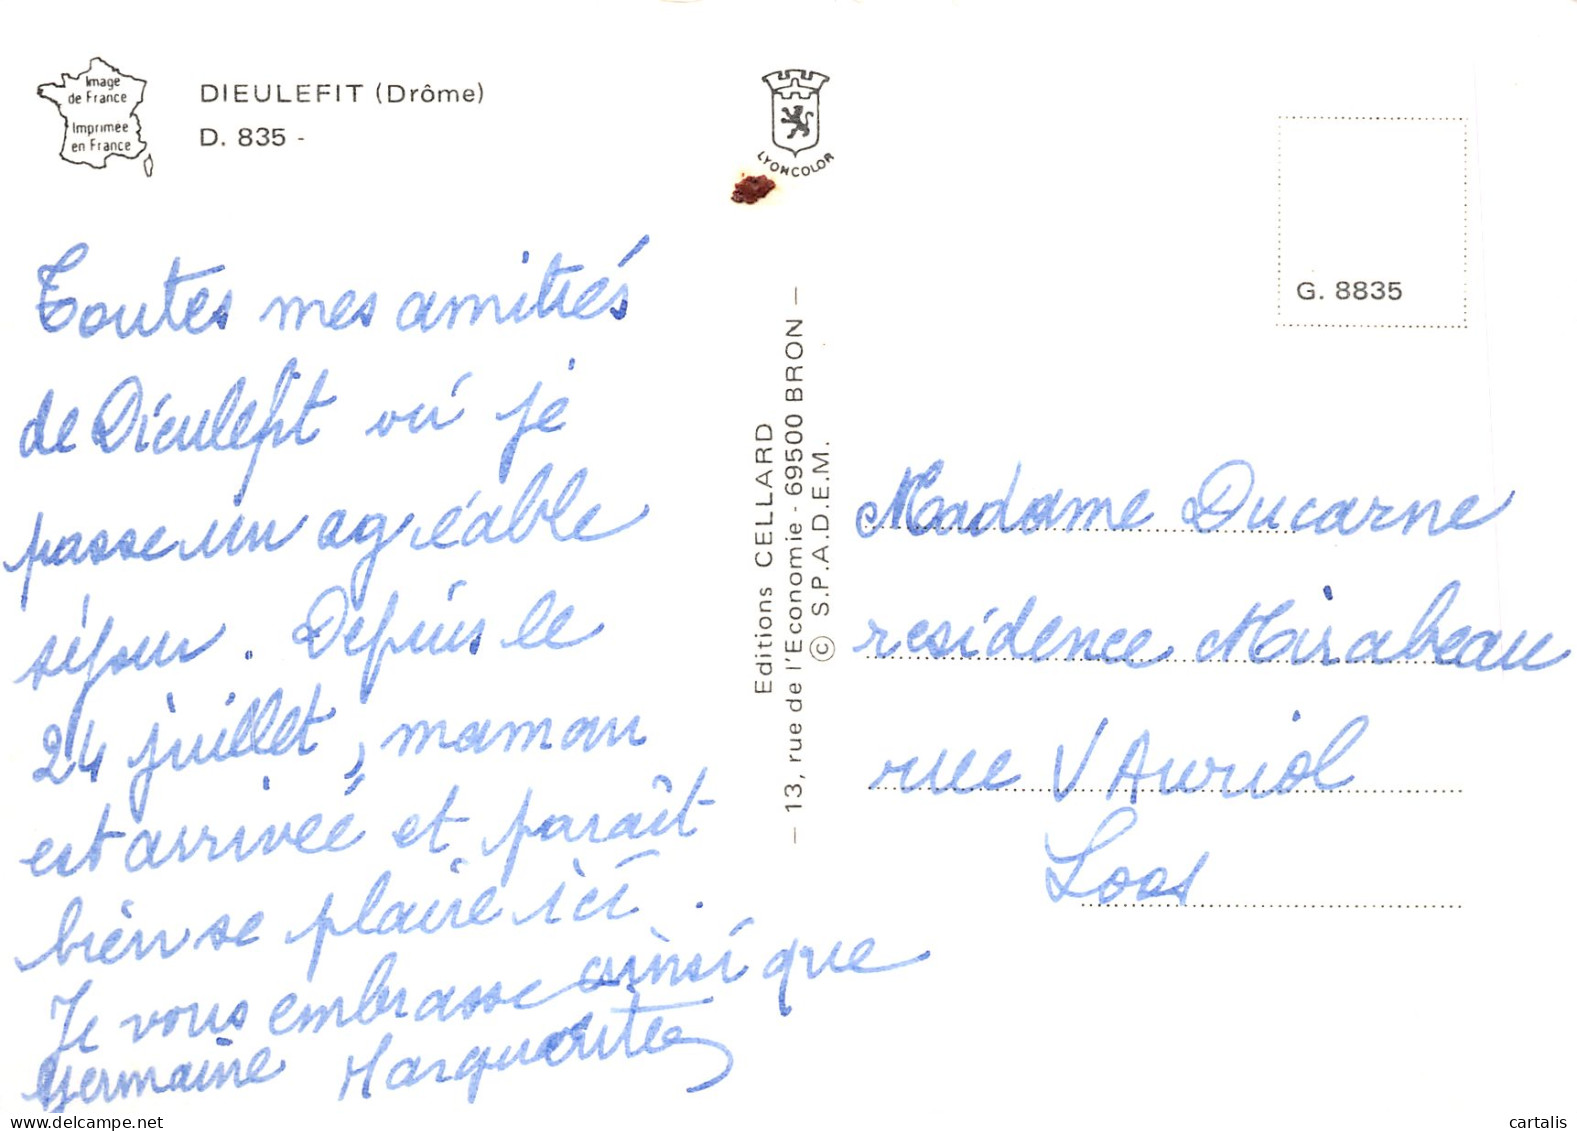 Image
de France
Imprimée
en France
DIEULEFIT (Drôme)
D. 835 -
LYONCOLOR
G. 8835
Toutes mes amitiés
de Dieulefit où je
passe un agréable
séjour. Depuis le
24 juillet, maman
est arrivée et paraît
bien se plaire ici.
Je vous embrasse ainsi que
Germaine Marguerite
Editions CELLARD
— 13, rue de l'Economie - 69500 BRON —
© S.P.A.D.E.M.
Madame Ducarne
residence Mirabeau
rue V Auriol
Loos
cartalis